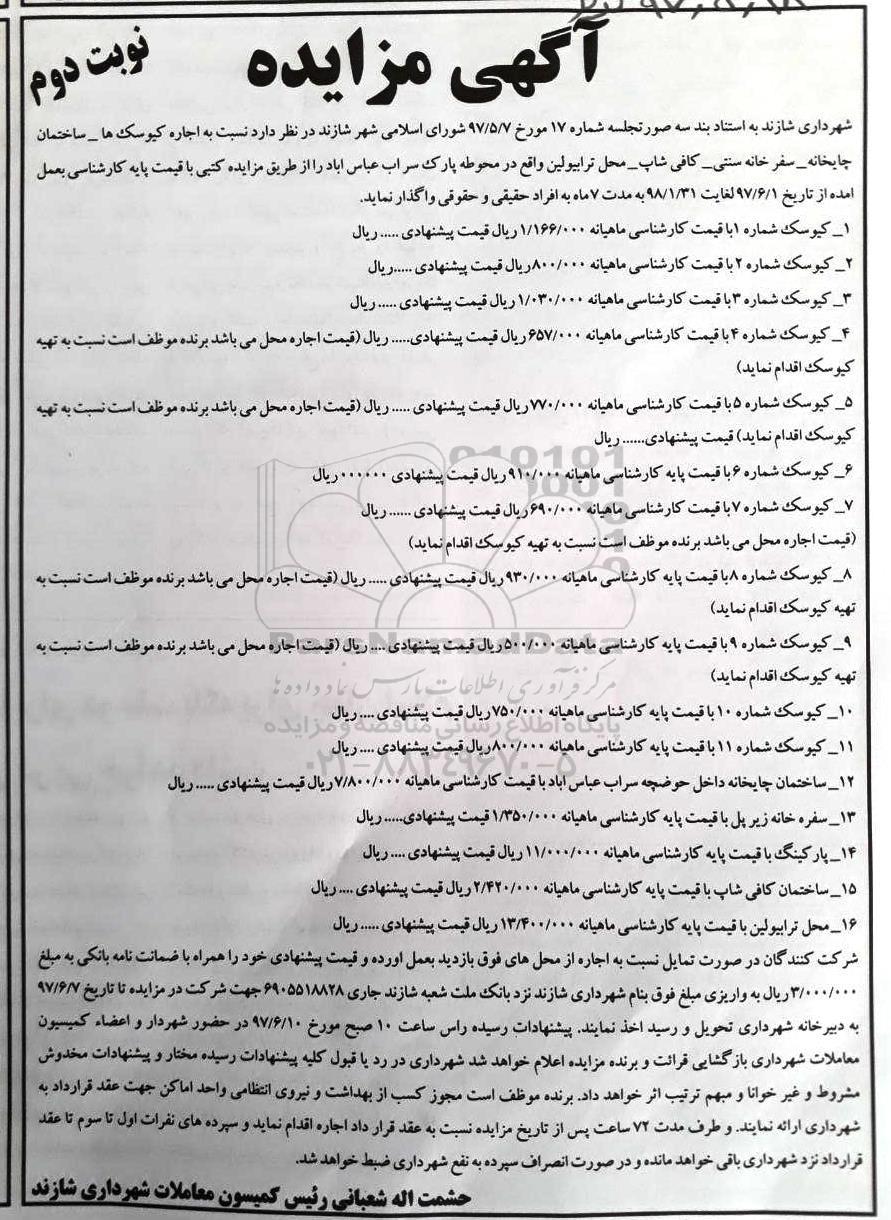 آگهی مزایده
نوبت دوم
شهرداری شازند به استناد بند سه صورتجلسه شماره ۱۷ مورخ ۹۷/۵/۷ شورای اسلامی شهر شازند در نظر دارد نسبت به اجاره کیوسک ها _ ساختمان
چایخانه_ سفر خانه سنتی_ کافی شاپ_ محل ترابیولین واقع در محوطه پارک سر اب عباس اباد را از طریق مزایده کتبی با قیمت پایه کارشناسی بعمل
امده از تاریخ ۹۷/۶/۱ لغایت ۹۸/۱/۳۱ به مدت ۷ ماه به افراد حقیقی و حقوقی واگذار نماید.
۱_ کیوسک شماره ۱ با قیمت کارشناسی ماهیانه ۱/۱۶۶/۰۰۰ ریال قیمت پیشنهادی ..... ریال
۲_ کیوسک شماره ۲ با قیمت کارشناسی ماهیانه ۸۰۰/۰۰۰ ریال قیمت پیشنهادی .....ریال
۳_ کیوسک شماره ۳ با قیمت کارشناسی ماهیانه ۱/۰۳۰/۰۰۰ ریال قیمت پیشنهادی ..... ریال
۴_ کیوسک شماره ۴ با قیمت کارشناسی ماهیانه ۶۵۷/۰۰۰ ریال قیمت پیشنهادی..... ریال (قیمت اجاره محل می باشد برنده موظف است نسبت به تهیه
کیوسک اقدام نماید)
۵_ کیوسک شماره ۵ با قیمت کارشناسی ماهیانه ۷۷۰/۰۰۰ ریال قیمت پیشنهادی ..... ریال (قیمت اجاره محل می باشد برنده موظف است نسبت به تهیه
کیوسک اقدام نماید) قیمت پیشنهادی...... ریال
۶_ کیوسک شماره ۶ با قیمت پایه کارشناسی ماهیانه ۹۱۰/۰۰۰ ریال قیمت پیشنهادی ۰۰۰۰۰۰ ریال
۷_ کیوسک شماره ۷ با قیمت کارشناسی ماهیانه ۶۹۰/۰۰۰ ریال قیمت پیشنهادی ...... ریال
(قیمت اجاره محل می باشد برنده موظف است نسبت به تهیه کیوسک اقدام نماید)
۸_ کیوسک شماره ۸ با قیمت پایه کارشناسی ماهیانه ۹۳۰/۰۰۰ ریال قیمت پیشنهادی ..... ریال (قیمت اجاره محل می باشد برنده موظف است نسبت به
تهیه کیوسک اقدام نماید)
۹_ کیوسک شماره ۹ با قیمت پایه کارشناسی ماهیانه ۵۰۰/۰۰۰ ریال قیمت پیشنهادی .... ریال (قیمت اجاره محل می باشد برنده موظف است نسبت به
تهیه کیوسک اقدام نماید)
ParsNamadData
مرکز فرآوری اطلاعات پارس نماد داده ها
۱۰_ کیوسک شماره ۱۰ با قیمت پایه کارشناسی ماهیانه ۷۵۰/۰۰۰ ریال قیمت پیشنهادی .... ریال
پایگاه اطلاع رسانی مناقصه و مزایده
۱۱_ کیوسک شماره ۱۱ با قیمت پایه کارشناسی ماهیانه ۸۰۰/۰۰۰ ریال قیمت پیشنهادی .... ریال
۰۲۱-۸۸۳۴۹۶۷۰-۵
۱۲_ ساختمان چایخانه داخل حوضچه سراب عباس اباد با قیمت کارشناسی ماهیانه ۷/۸۰۰/۰۰۰ ریال قیمت پیشنهادی ..... ریال
۱۳_ سفره خانه زیر پل با قیمت پایه کارشناسی ماهیانه ۱/۳۵۰/۰۰۰ قیمت پیشنهادی..... ریال
۱۴_ پارکینگ با قیمت پایه کارشناسی ماهیانه ۱۱/۰۰۰/۰۰۰ ریال قیمت پیشنهادی .... ریال
۱۵_ ساختمان کافی شاپ با قیمت پایه کارشناسی ماهیانه ۲/۴۲۰/۰۰۰ ریال قیمت پیشنهادی .... ریال
۱۶_ محل ترابیولین با قیمت پایه کارشناسی ماهیانه ۱۳/۴۰۰/۰۰۰ ریال قیمت پیشنهادی ..... ریال
شرکت کنندگان در صورت تمایل نسبت به اجاره از محل های فوق بازدید بعمل اورده و قیمت پیشنهادی خود را همراه با ضمانت نامه بانکی به مبلغ
۳/۰۰۰/۰۰۰ ریال به واریزی مبلغ فوق بنام شهرداری شازند نزد بانک ملت شعبه شازند جاری ۶۹۰۵۵۱۸۸۲۸ جهت شرکت در مزایده تا تاریخ ۹۷/۶/۷
به دبیرخانه شهرداری تحویل و رسید اخذ نمایند. پیشنهادات رسیده راس ساعت ۱۰ صبح مورخ ۹۷/۶/۱۰ در حضور شهردار و اعضاء کمیسیون
معاملات شهرداری بازگشایی قرائت و برنده مزایده اعلام خواهد شد شهرداری در رد یا قبول کلیه پیشنهادات رسیده مختار و پیشنهادات مخدوش
مشروط و غیر خوانا و مبهم ترتیب اثر خواهد داد. برنده موظف است مجوز کسب از بهداشت و نیروی انتظامی واحد اماکن جهت عقد قرارداد به
شهرداری ارائه نمایند. و ظرف مدت ۷۲ ساعت پس از تاریخ مزایده نسبت به عقد قرار داد اجاره اقدام نماید و سپرده های نفرات اول تا سوم تا عقد
قرارداد نزد شهرداری باقی خواهد مانده و در صورت انصراف سپرده به نفع شهرداری ضبط خواهد شد.
حشمت اله شعبانی رئیس کمیسون معاملات شهرداری شازند